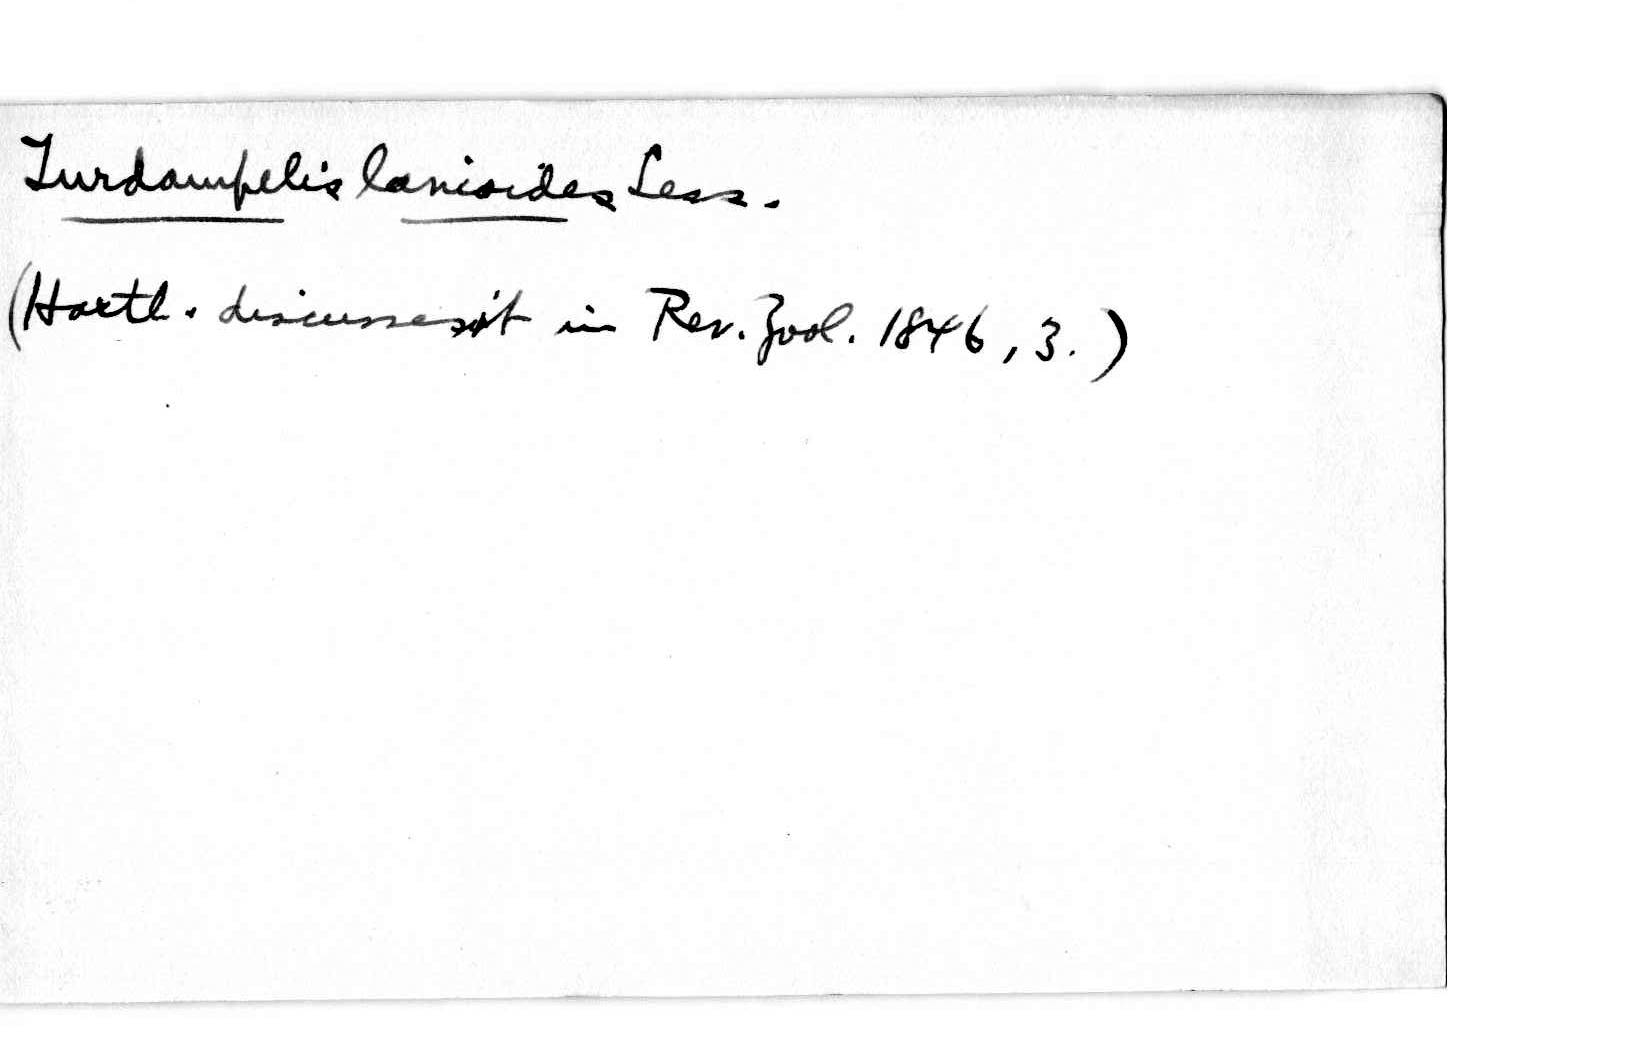 Turdampelis lanioïdes Less.
(Hartl. discusses it in Rev. Zool. 1846, 3.)